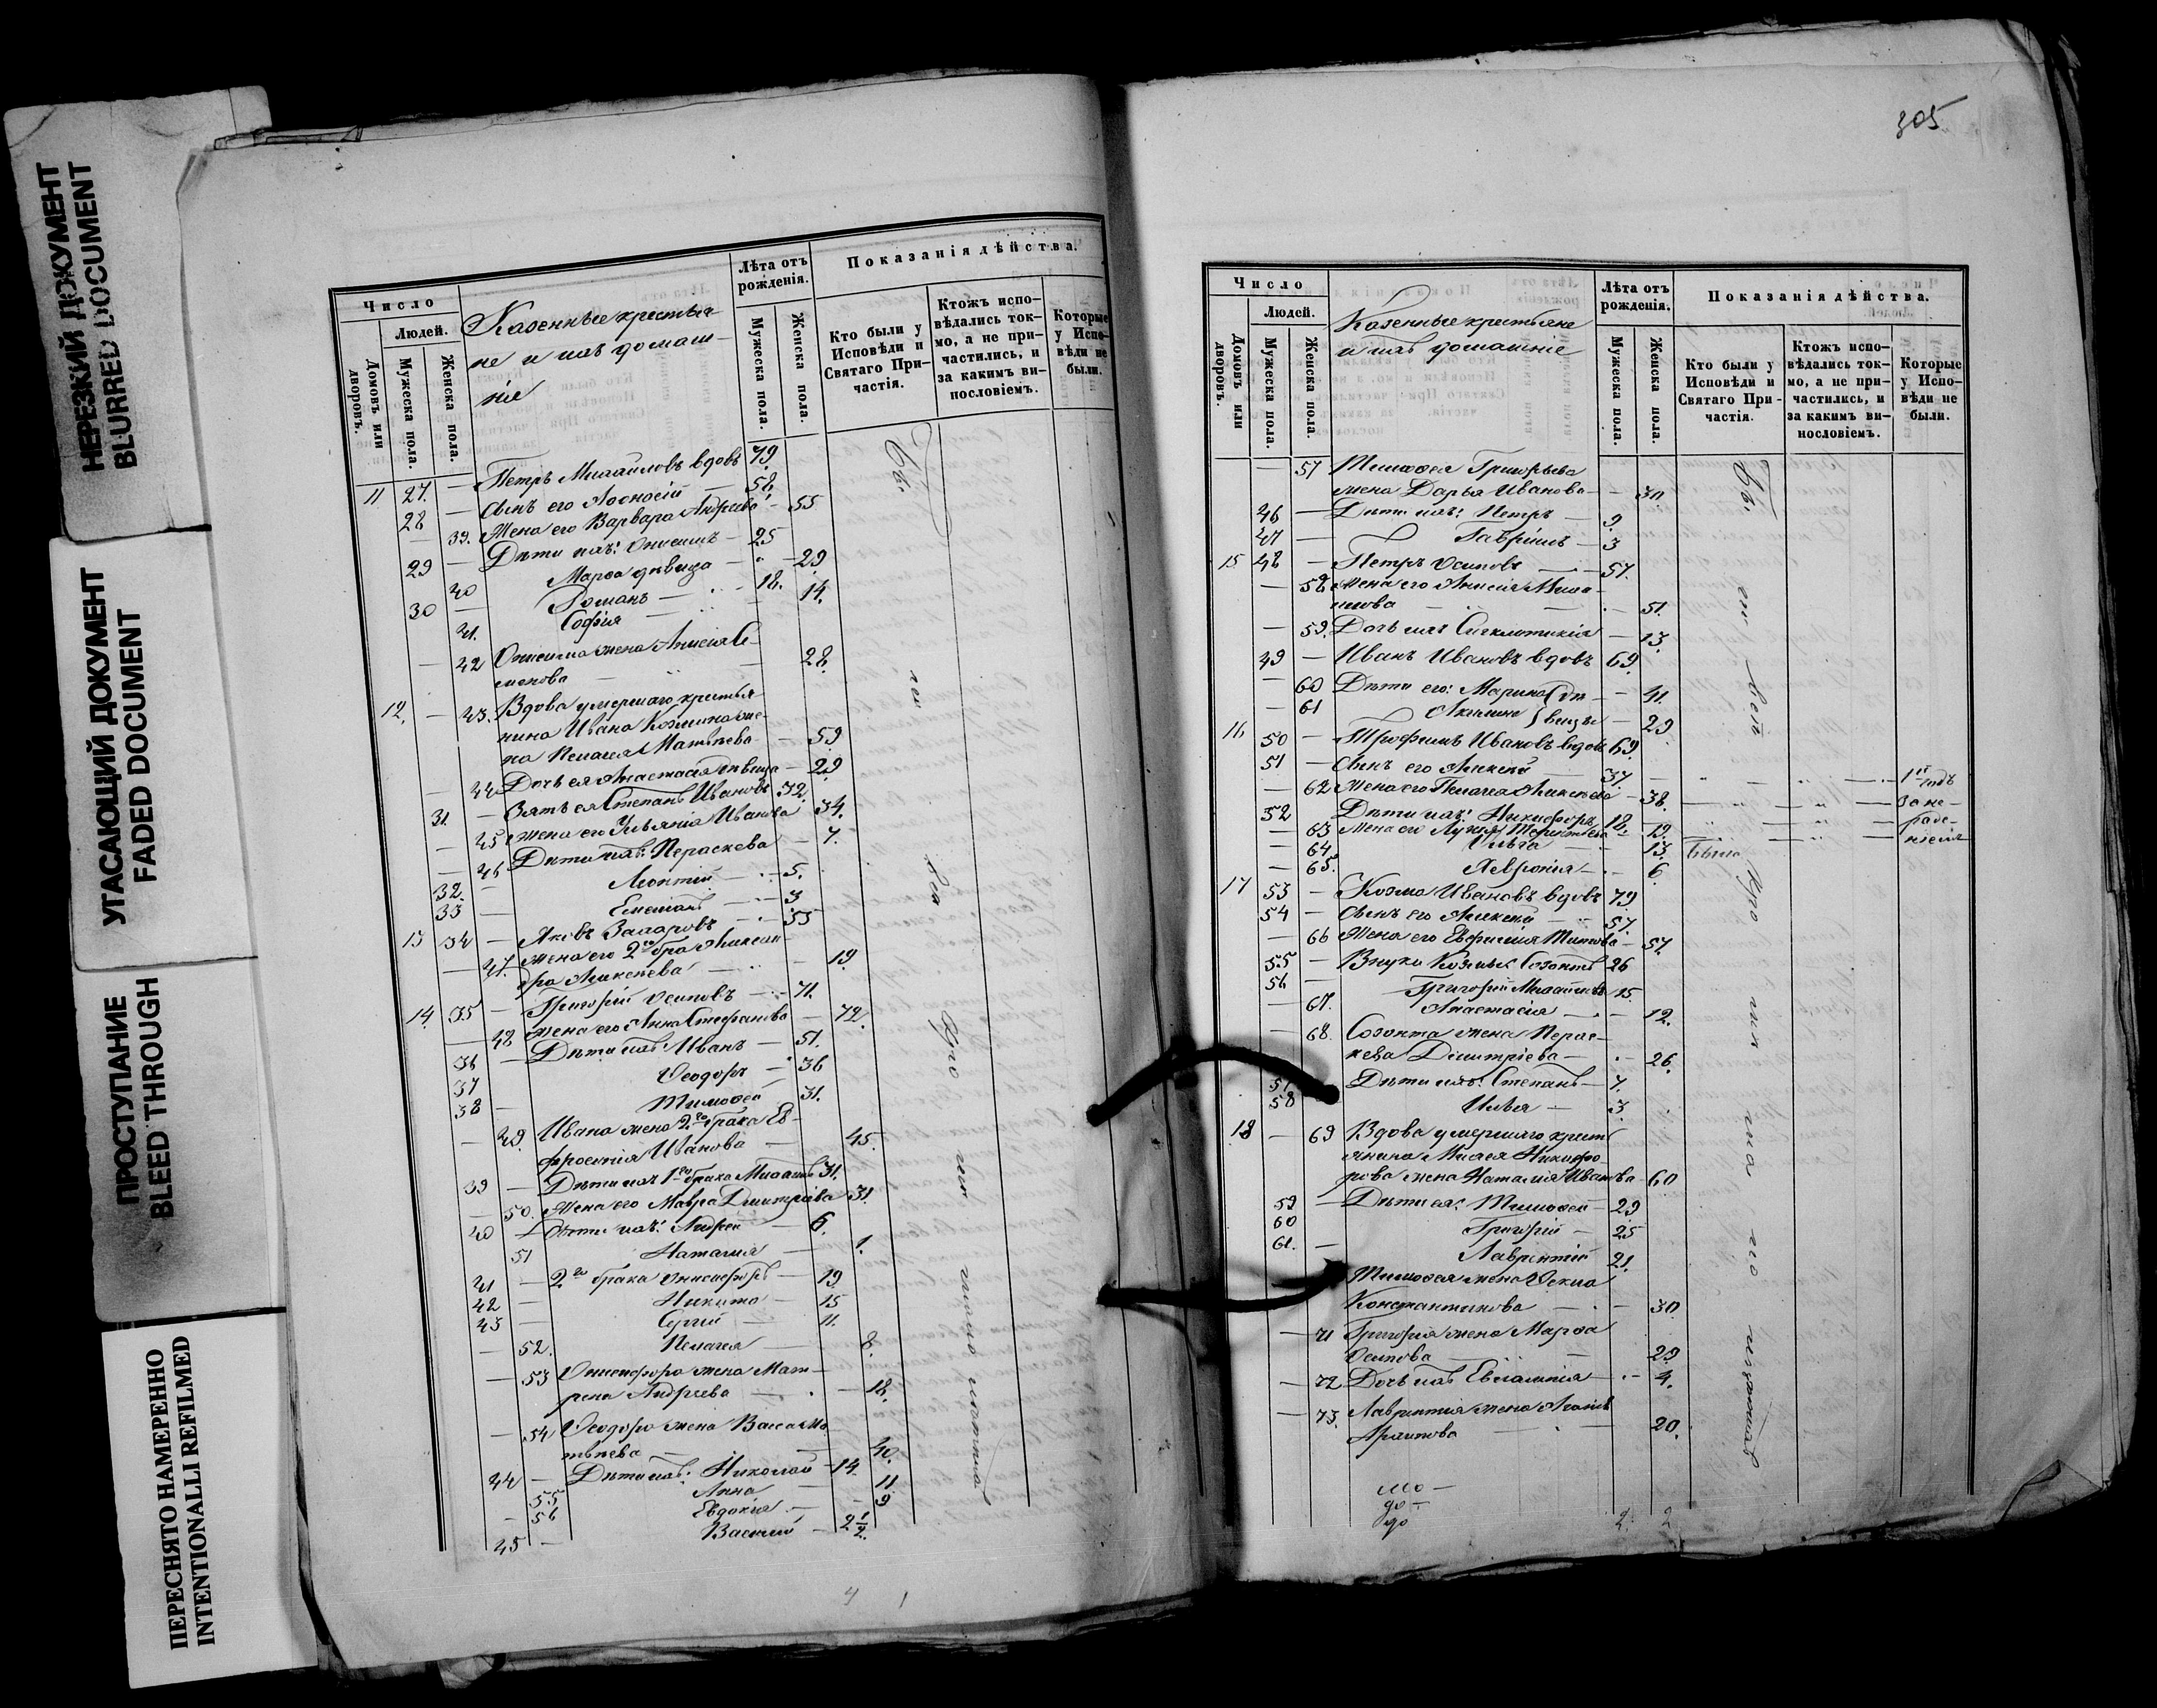 НЕРЕЗКИЙ ДОКУМЕНТ
BLURRED DOCUMENT
УГАСАЮЩИЙ ДОКУМЕНТ
FADED DOCUMENT
ПРОСТУПАНИЕ
BLEED THROUGH
ПЕРЕСНЯТО НАМЕРЕННО
INTENTIONALLI REFILMED
Число
Людей.
Домовъ или дворовъ.
Мужеска пола.
Женска пола.
Казенные крестья-
не и ихъ домаш-
ніе
Лѣта отъ рожденія.
Мужеска пола.
Женска пола.
Показанія дѣйства.
Кто были у Исповѣди и Святаго При-частія.
Ктожъ испо-вѣдались ток-мо, а не при-частились, и за какимъ ви-пословіемъ.
Которые у Испо-вѣди не были.
11 27. — Петръ Михайловъ вдовъ 79.
28 — Сынъ его Аѳонасій — 58.
— 39. Жена его Варвара Андреева — 55
29 — Дѣти ихъ: Онисимъ — 25
40 Марѳа дѣвица — 29
30 — Романъ — 18.
41. Софія — 14.
— 42 Онисима жена Анисія Се-
менова — 28.
12. — 43. Вдова умершаго крестья-
нина Ивана Козмина же-
на Пелагея Матвѣева — 59
— 44 Дочь ея Анастасія дѣвица — 29
31. — Зять ея Степанъ Ивановъ 32.
— 45 Жена его Ульянія Иванова 34.
— 46 Дѣти ихъ: Параскева — 7.
32. — Леонтій — 5.
33 — Емеліанъ — 3
13 34 — Яковъ Захаровъ — 55
— 47. Жена его 2го бра Алексан-
дра Алексѣева — 19.
14. 35 — Григорій Осиповъ — 71.
— 48 Жена его Анна Стефанова — 72.
36 — Дѣти ихъ: Иванъ — 51.
37 Ѳеодоръ — 36
38 — Тимоѳей 31.
— 49. Ивана жена 2го брака Ев-
фросинія Иванова — 45.
39 — Дѣти ихъ 1го брака Михаилъ 31.
— 50. Жена его Мавра Димитріева 31.
40 — Дѣти ихъ: Андрей — 6.
51 Наталія — 1.
41 — 2го брака Онисифоръ — 19
42 — Никита — 15
43 — Сергій — 11.
— 52. Пелагея — 8.
— 53 Онисифора жена Мат-
рена Андреева — 18.
— 54 Ѳеодора жена Васса Ма-
твѣева — 40.
44 — Дѣти ихъ: Николай — 14.
55 Анна — 11
— 56 Евдокія — 9
45 — Василій — 2 1/2.
305
Число
Людей.
Домовъ или дворовъ.
Мужеска пола.
Женска пола.
Казенные крестьяне
и ихъ домашніе
Лѣта отъ рожденія.
Мужеска пола.
Женска пола.
Показанія дѣйства.
Кто были у Исповѣди и Святаго При-частія.
Ктожъ испо-вѣдались ток-мо, а не при-частились, и за какимъ ви-нословіемъ.
Которые у Испо-вѣди не были.
— 57 Тимоѳея Григорьева
жена Дарья Иванова — 30.
46 — Дѣти ихъ: Петръ — 9.
47 — Гавріилъ — 3
15 48 — Петръ Осиповъ — 57.
— 58 Жена его Анисія Миха-
илова — 51.
— 59. Дочь ихъ Синклитикія — 13.
49 — Иванъ Ивановъ вдовъ 69.
— 60 Дѣти его: Марина дѣ- — 41.
— 61 Акилина вицы — 29.
16 50 — Трофимъ Ивановъ вдовъ 69.
51 — Сынъ его Алексѣй 37. — 1й годъ
— 62 Жена его Пелагея Алексѣева — 38. — За не-
52 Дѣти ихъ: Никифоръ 18. — раде-
— 63 Жена его Лукія Терентьева 19. — ніемъ
— 64 Ольга — 13. Была
— 65. Хавронія — 6.
17 53 — Козма Ивановъ вдовъ 79.
54 — Сынъ его Алексѣй — 57.
— 66 Жена его Евфимія Титова — 57.
55 — Внуки Козмы: Созонтъ 26
56 — Григорій Михайловъ 15.
— 67. Анастасія — 12.
— 68. Созонта жена Парас-
кева Димитріева — 26.
57 Дѣти ихъ: Степанъ — 7.
58 Илья — 3.
18 — 69 Вдова умершаго крест-
янина Михея Никифо-
рова жена Наталія Иванова — 60
59 — Дѣти ея: Тимоѳей — 29
60 Григорій — 25
61. — Лаврентій 21.
Тимоѳея жена Ѳекла
Константинова — 30
— 71 Григорія жена Марѳа
Осипова — 29
— 72 Дочь ихъ Евлампія — 4.
— 73. Лаврентія жена Агаѳія
Архипова — 20.
2. 2